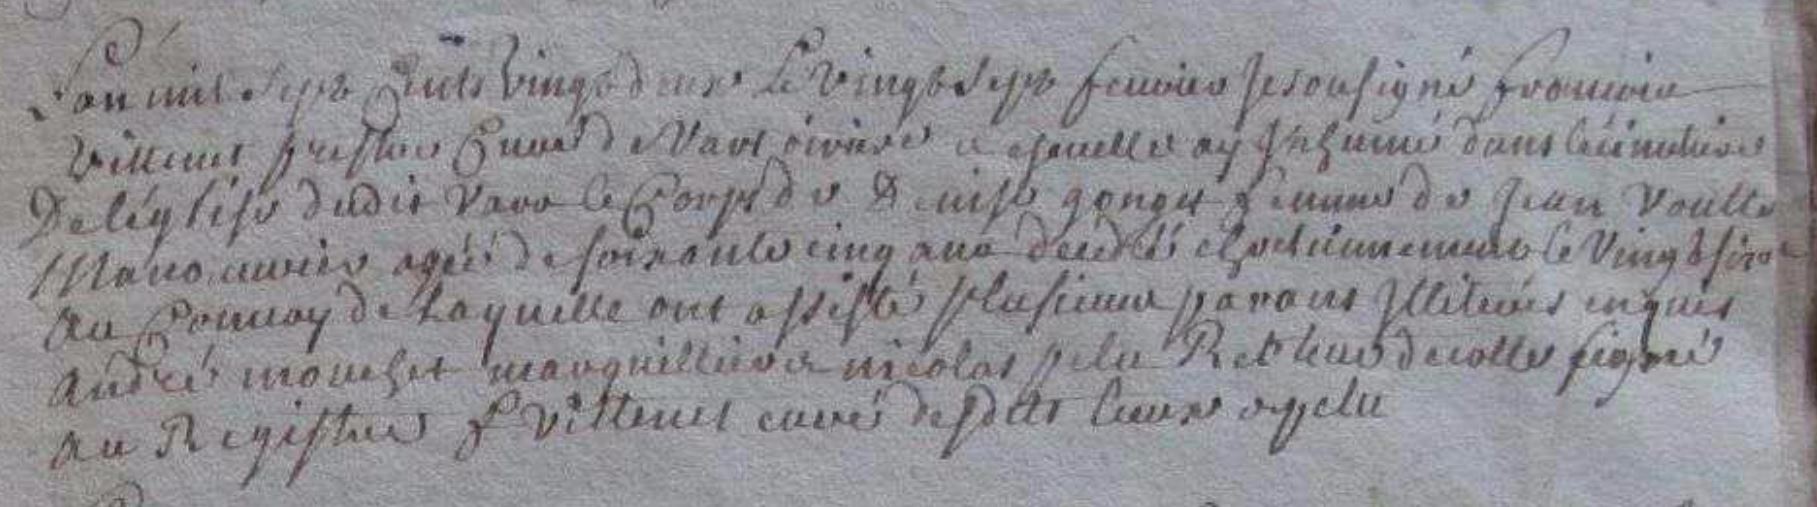 L'an mil sept cents vingt deux le vingt sept feuvrier je sousigné francois
Villemet prestre Curé de Vars ay Inhumé dans le cimetiere
De léglise dudit Vars le Corps de Denise femme de Jean Voulle
Manouvrier agée de soixante cinq ans decedée chretiennement le vingt six
au Convoy de Laquelle ont assisté plusieurs parans Illiterés enquis
André mouchet marguillier et nicolas pelu Recteur decolle signé
au Registre f Villemet curé desdits lieux